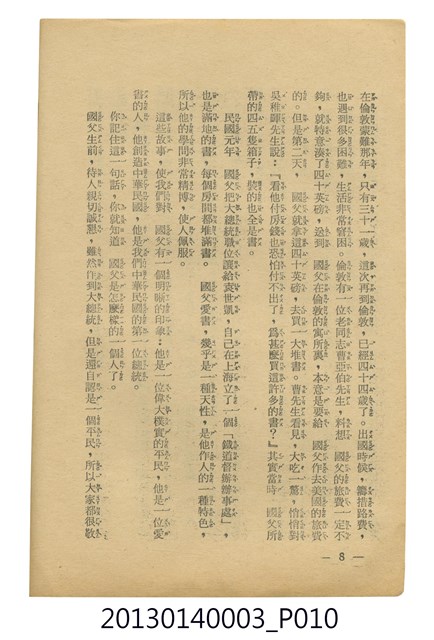 在倫敦蒙難那年，只有三十一歲，這次再到倫敦，已經四十四歲了。出國時候，籌措路費，
也遇到很多困難，生活非常窘困。倫敦有一位老同志曹亞伯先生，料想　國父的旅費一定不
夠，就特意湊了四十英磅，送到　國父在倫敦的寓所裏，本意是要給　國父作去美國的旅費
的。但是第二天，　國父就拿這四十英磅，去買一大堆書。曹先生看見，大吃一驚，悄悄對
吳稚暉先生說：『看他付房錢也恐怕付不出了，爲甚麼買這許多的書？』其實當時　國父所
帶的四五隻箱子，裝的也全是書。
民國元年　國父把大總統職位讓給袁世凱，自己在上海立了一個「鐵道督辦辦事處」，
也是滿地的書，每個房間都堆滿書。　國父愛書，幾乎是一種天性，是他作人的一種特色，
所以他的學問非常精博，使人佩服。
這些故事，使我們對　國父有一個明晰的印象：他是一位偉大樸實的平民，他是一位愛
書的人，他創造中華民國，他是我們中華民國的第一位總統。
你記住這一句話，你就知道　國父是怎麼樣的一個人了。
國父生前，待人親切誠懇，雖然作到大總統，但是還自認是一個平民，所以大家都很敬
— 8 —
20130140003_P010